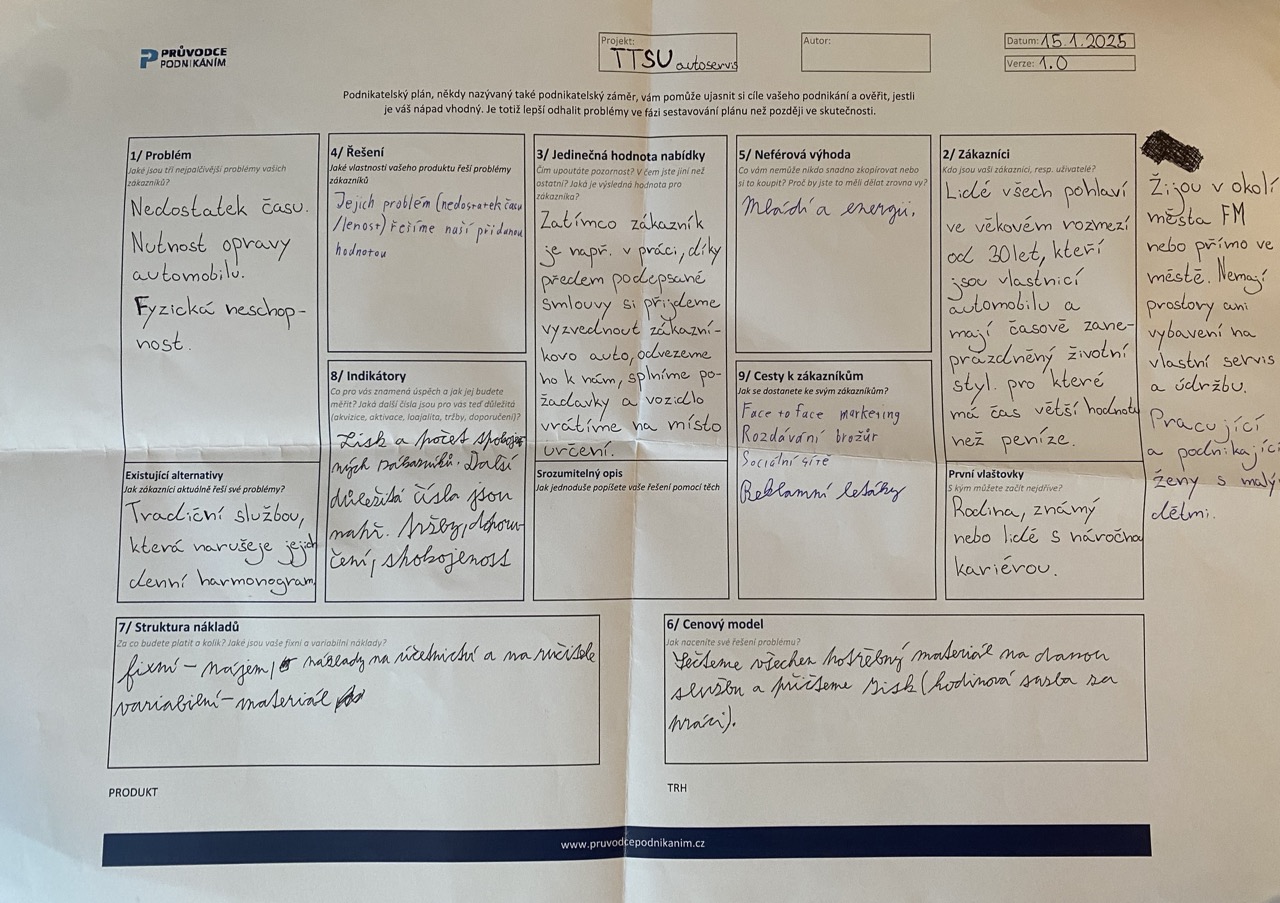 PRŮVODCE
PODNIKÁNÍM
Projekt:
TTSU autoservis
Autor:
Datum: 15.1.2025
Verze: 1.0
Podnikatelský plán, někdy nazývaný také podnikatelský záměr, vám pomůže ujasnit si cíle vašeho podnikání a ověřit, jestli
je váš nápad vhodný. Je totiž lepší odhalit problémy ve fázi sestavování plánu než později ve skutečnosti.
1/ Problém
Jaké jsou tři nejpalčivější problémy vašich
zákazníků?
Nedostatek času.
Nutnost opravy
automobilu.
Fyzická neschop-
nost.
Existující alternativy
Jak zákazníci aktuálně řeší své problémy?
Tradiční službou,
která narušeje jejich
denní harmonogram
4/ Řešení
Jaké vlastnosti vašeho produktu řeší problémy
zákazníků
Jejich problém (nedostatek času
/lenost) řešíme naší přidanou
hodnotou
8/ Indikátory
Co pro vás znamená úspěch a jak jej budete
měřit? Jaká další čísla jsou pro vás teď důležitá
(akvizice, aktivace, loajalita, tržby, doporučení)?
Zisk a počet spokoje
ných zákazníků. Další
důležitá čísla jsou
např. tržby, doporu-
čení, spokojenost
3/ Jedinečná hodnota nabídky
Čím upoutáte pozornost? V čem jste jiní než
ostatní? Jaká je výsledná hodnota pro
zákazníka?
Zatímco zákazník
je např. v práci, díky
předem podepsané
smlouvy si přijdeme
vyzvednout zákazní-
kovo auto, odvezeme
ho k nám, splníme po-
žadavky a vozidlo
vrátíme na místo
určení.
Srozumitelný opis
Jak jednoduše popíšete vaše řešení pomocí těch
5/ Neférová výhoda
Co vám nemůže nikdo snadno zkopírovat nebo
si to koupit? Proč by jste to měli dělat zrovna vy?
Mládí a energii.
9/ Cesty k zákazníkům
Jak se dostanete ke svým zákazníkům?
Face to face marketing
Rozdávání brožůr
Sociální sítě
Reklamní letáky
2/ Zákazníci
Kdo jsou vaši zákazníci, resp. uživatelé?
Lidé všech pohlaví
ve věkovém rozmezí
od 30 let, kteří
jsou vlastnící
automobilu a
mají časově zane-
prázdněný životní
styl. pro které
má čas větší hodnotu
než peníze.
První vlaštovky
S kým můžete začít nejdříve?
Rodina, známý
nebo lidé s náročnou
kariérou.
Žijou v okolí
města FM
nebo přímo ve
městě. Nemají
prostory ani
vybavení na
vlastní servis
a údržbu.
Pracující
a podnikající
ženy s malý
dětmi.
7/ Struktura nákladů
Za co budete platit a kolik? Jaké jsou vaše fixní a variabilní náklady?
fixní – nájem, náklady na účetnictví a na ručitele
variabilní – materiál
6/ Cenový model
Jak naceníte své řešení problému?
Sečteme všechen potřebný materiál na danou
službu a přičteme zisk (hodinová sazba za
práci).
PRODUKT
TRH
www.pruvodcepodnikanim.cz